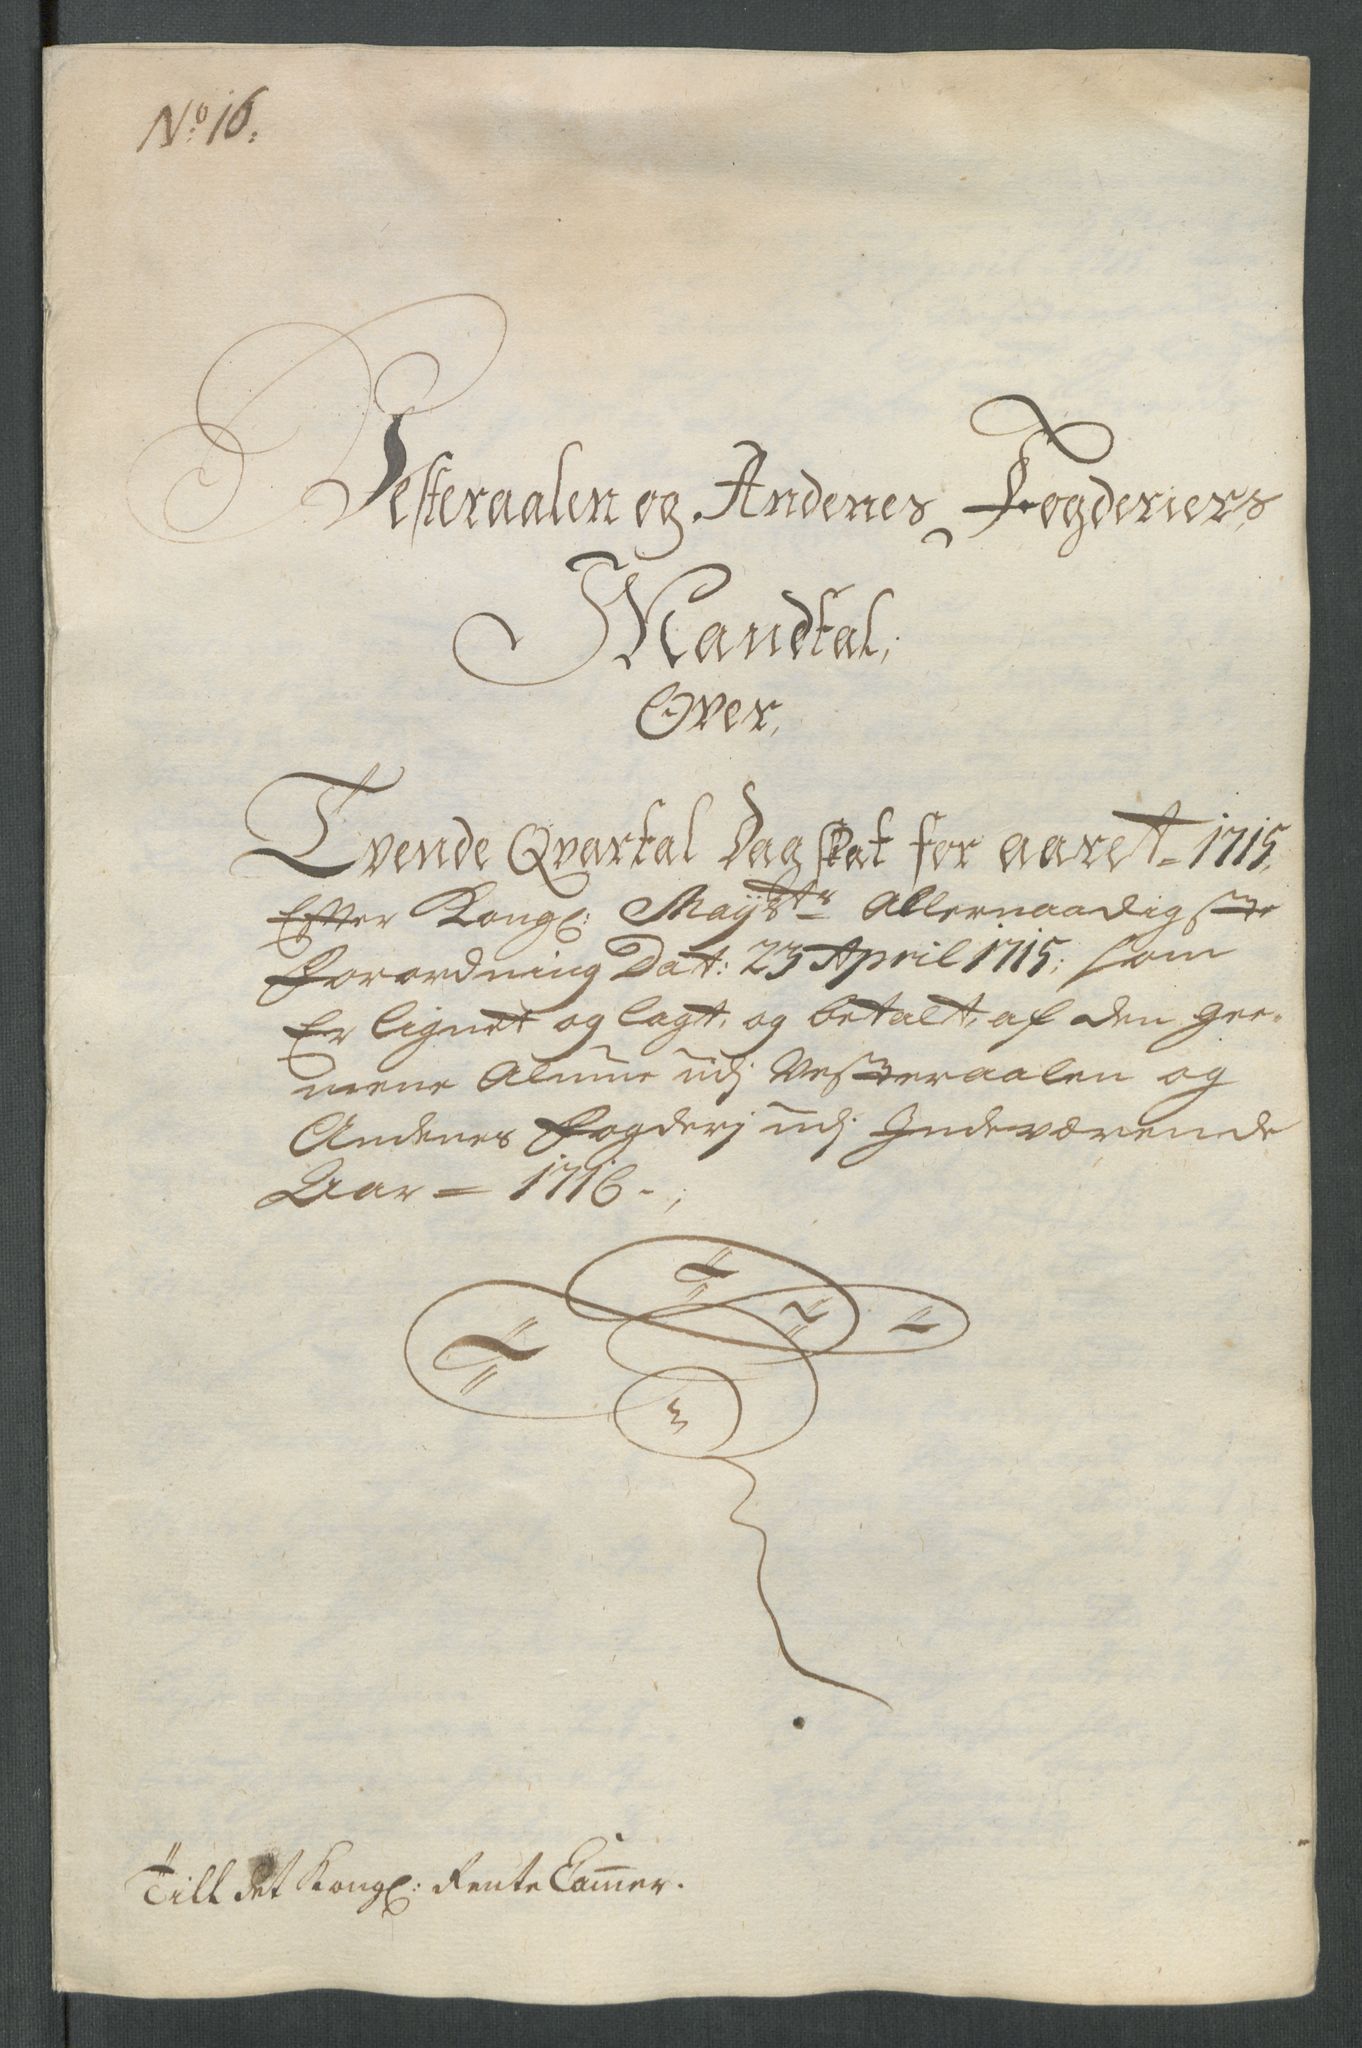 No 16.
Vesteraalen og Andenes Fogderiers
Mandtal,
Over,
Tvende Qvartal Dagskat for aaret 1715,
Efter Kongl: Mayts Allernaadigste
Forordning Dat: 23 April 1715; som
Er lignet og lagt, og betalt, af den gee-
meene Almue udj Vesteraalen og
Andenes Fogderj udj Indeværende
Aar = 1716 -;
Till det Kongl: Rente Cammer.